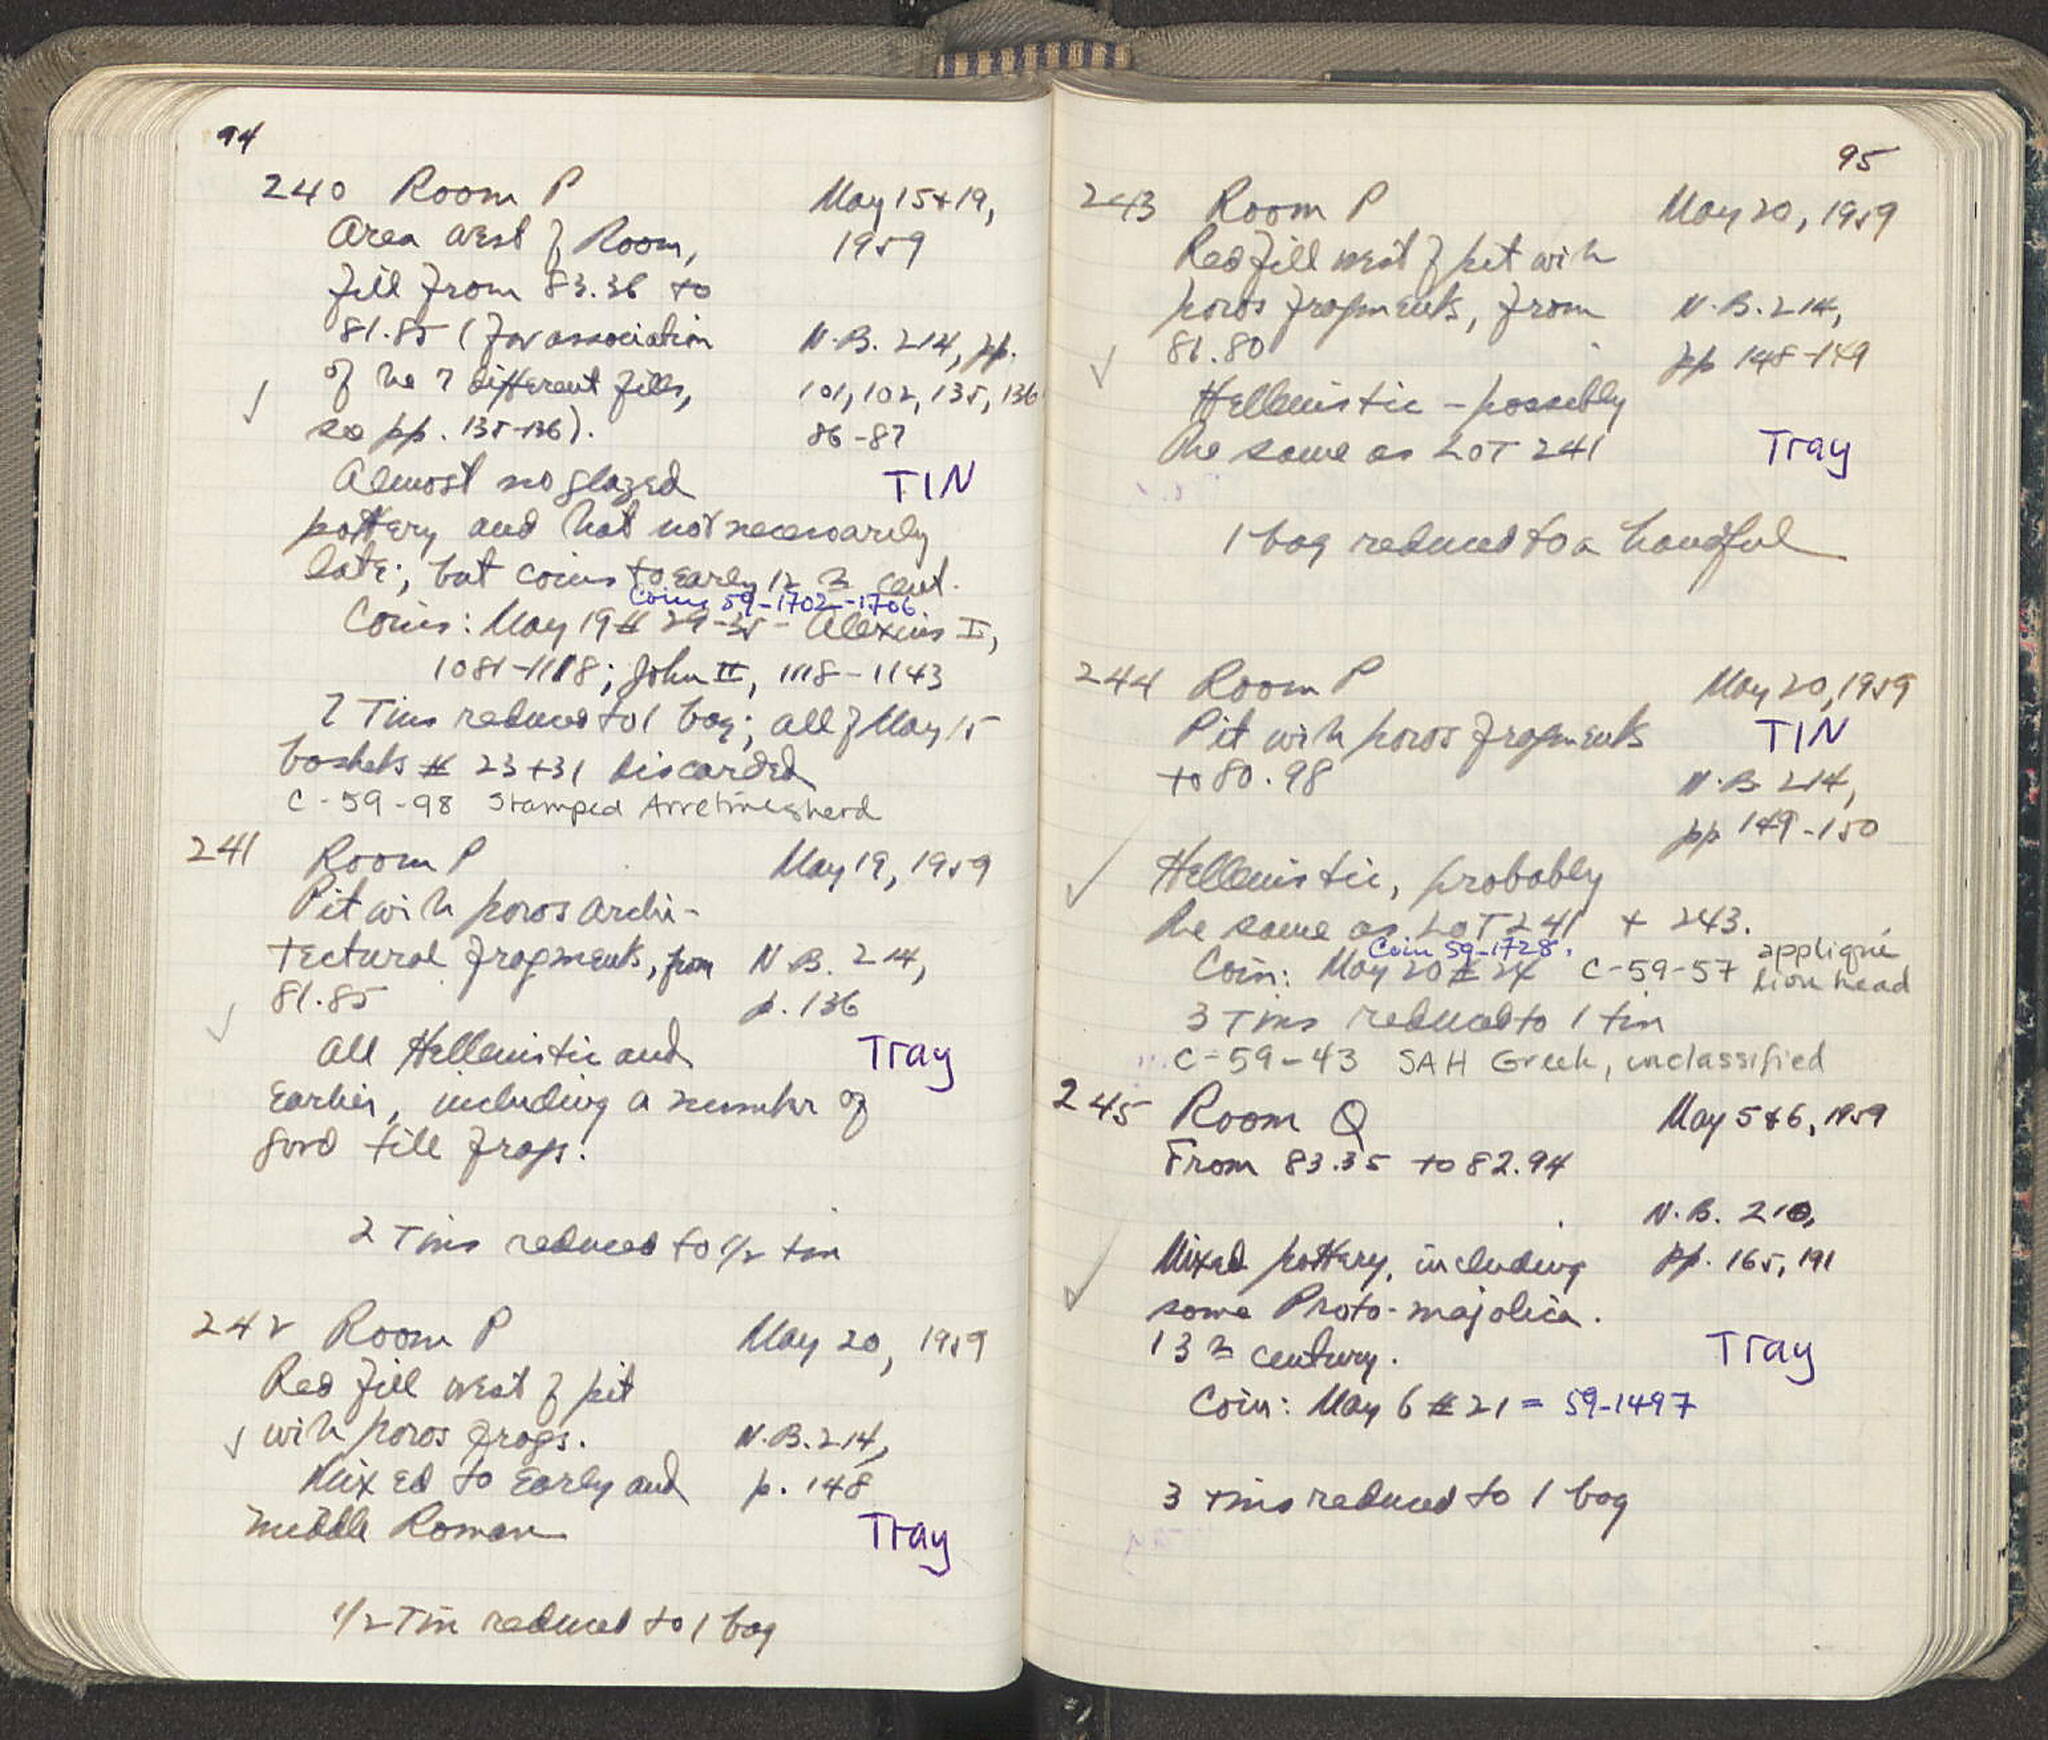 94
240 Room P May 15+19,
Area west of Room, 1959
fill from 83.36 to
81.85 (for association N.B. 214, pp.
of the 7 different fills, 101, 102, 135, 136
see pp. 135-136). 86-87
Almost no glazed TIN
pottery and that not necessarily
late; but coins to early 12th cent.
Coins 59-1702-1706.
Coins: May 19 # 29-35 - Alexius I,
1081-1118; John II, 1118-1143
7 Tins reduced to 1 bag; all of May 15
baskets # 23+31 discarded
C-59-98 Stamped Arretine sherd
241 Room P May 19, 1959
Pit with poros archi-
tectural fragments, from N.B. 214,
81.85 p. 136
All Hellenistic and Tray
Earlier, including a number of
good tile frags.
2 Tins reduced to 1/2 tin
242 Room P May 20, 1959
Red fill west of pit
with poros frags. N.B. 214,
Mixed to Early and p. 148
middle Roman Tray
1/2 Tin reduced to 1 bag
95
243 Room P May 20, 1959
Red fill west of pit with
poros fragments, from N.B. 214,
81.80 pp 148-149
Hellenistic - possibly
the same as LOT 241 Tray
1 bag reduced to a handful
244 Room P May 20, 1959
Pit with poros fragments TIN
to 80.98 N.B. 214,
pp 149-150
Hellenistic, probably
the same as LOT 241 + 243.
Coin 59-1728. appliqué
Coin: May 20 # 24 C-59-57 lion head
3 Tins reduced to 1 tin
C-59-43 SAH Greek, unclassified
245 Room Q May 5+6, 1959
From 83.35 to 82.94
N.B. 210,
Mixed pottery, including pp. 165, 191
some Proto-majolica.
13th century. Tray
Coin: May 6 # 21 = 59-1497
3 tins reduced to 1 bag